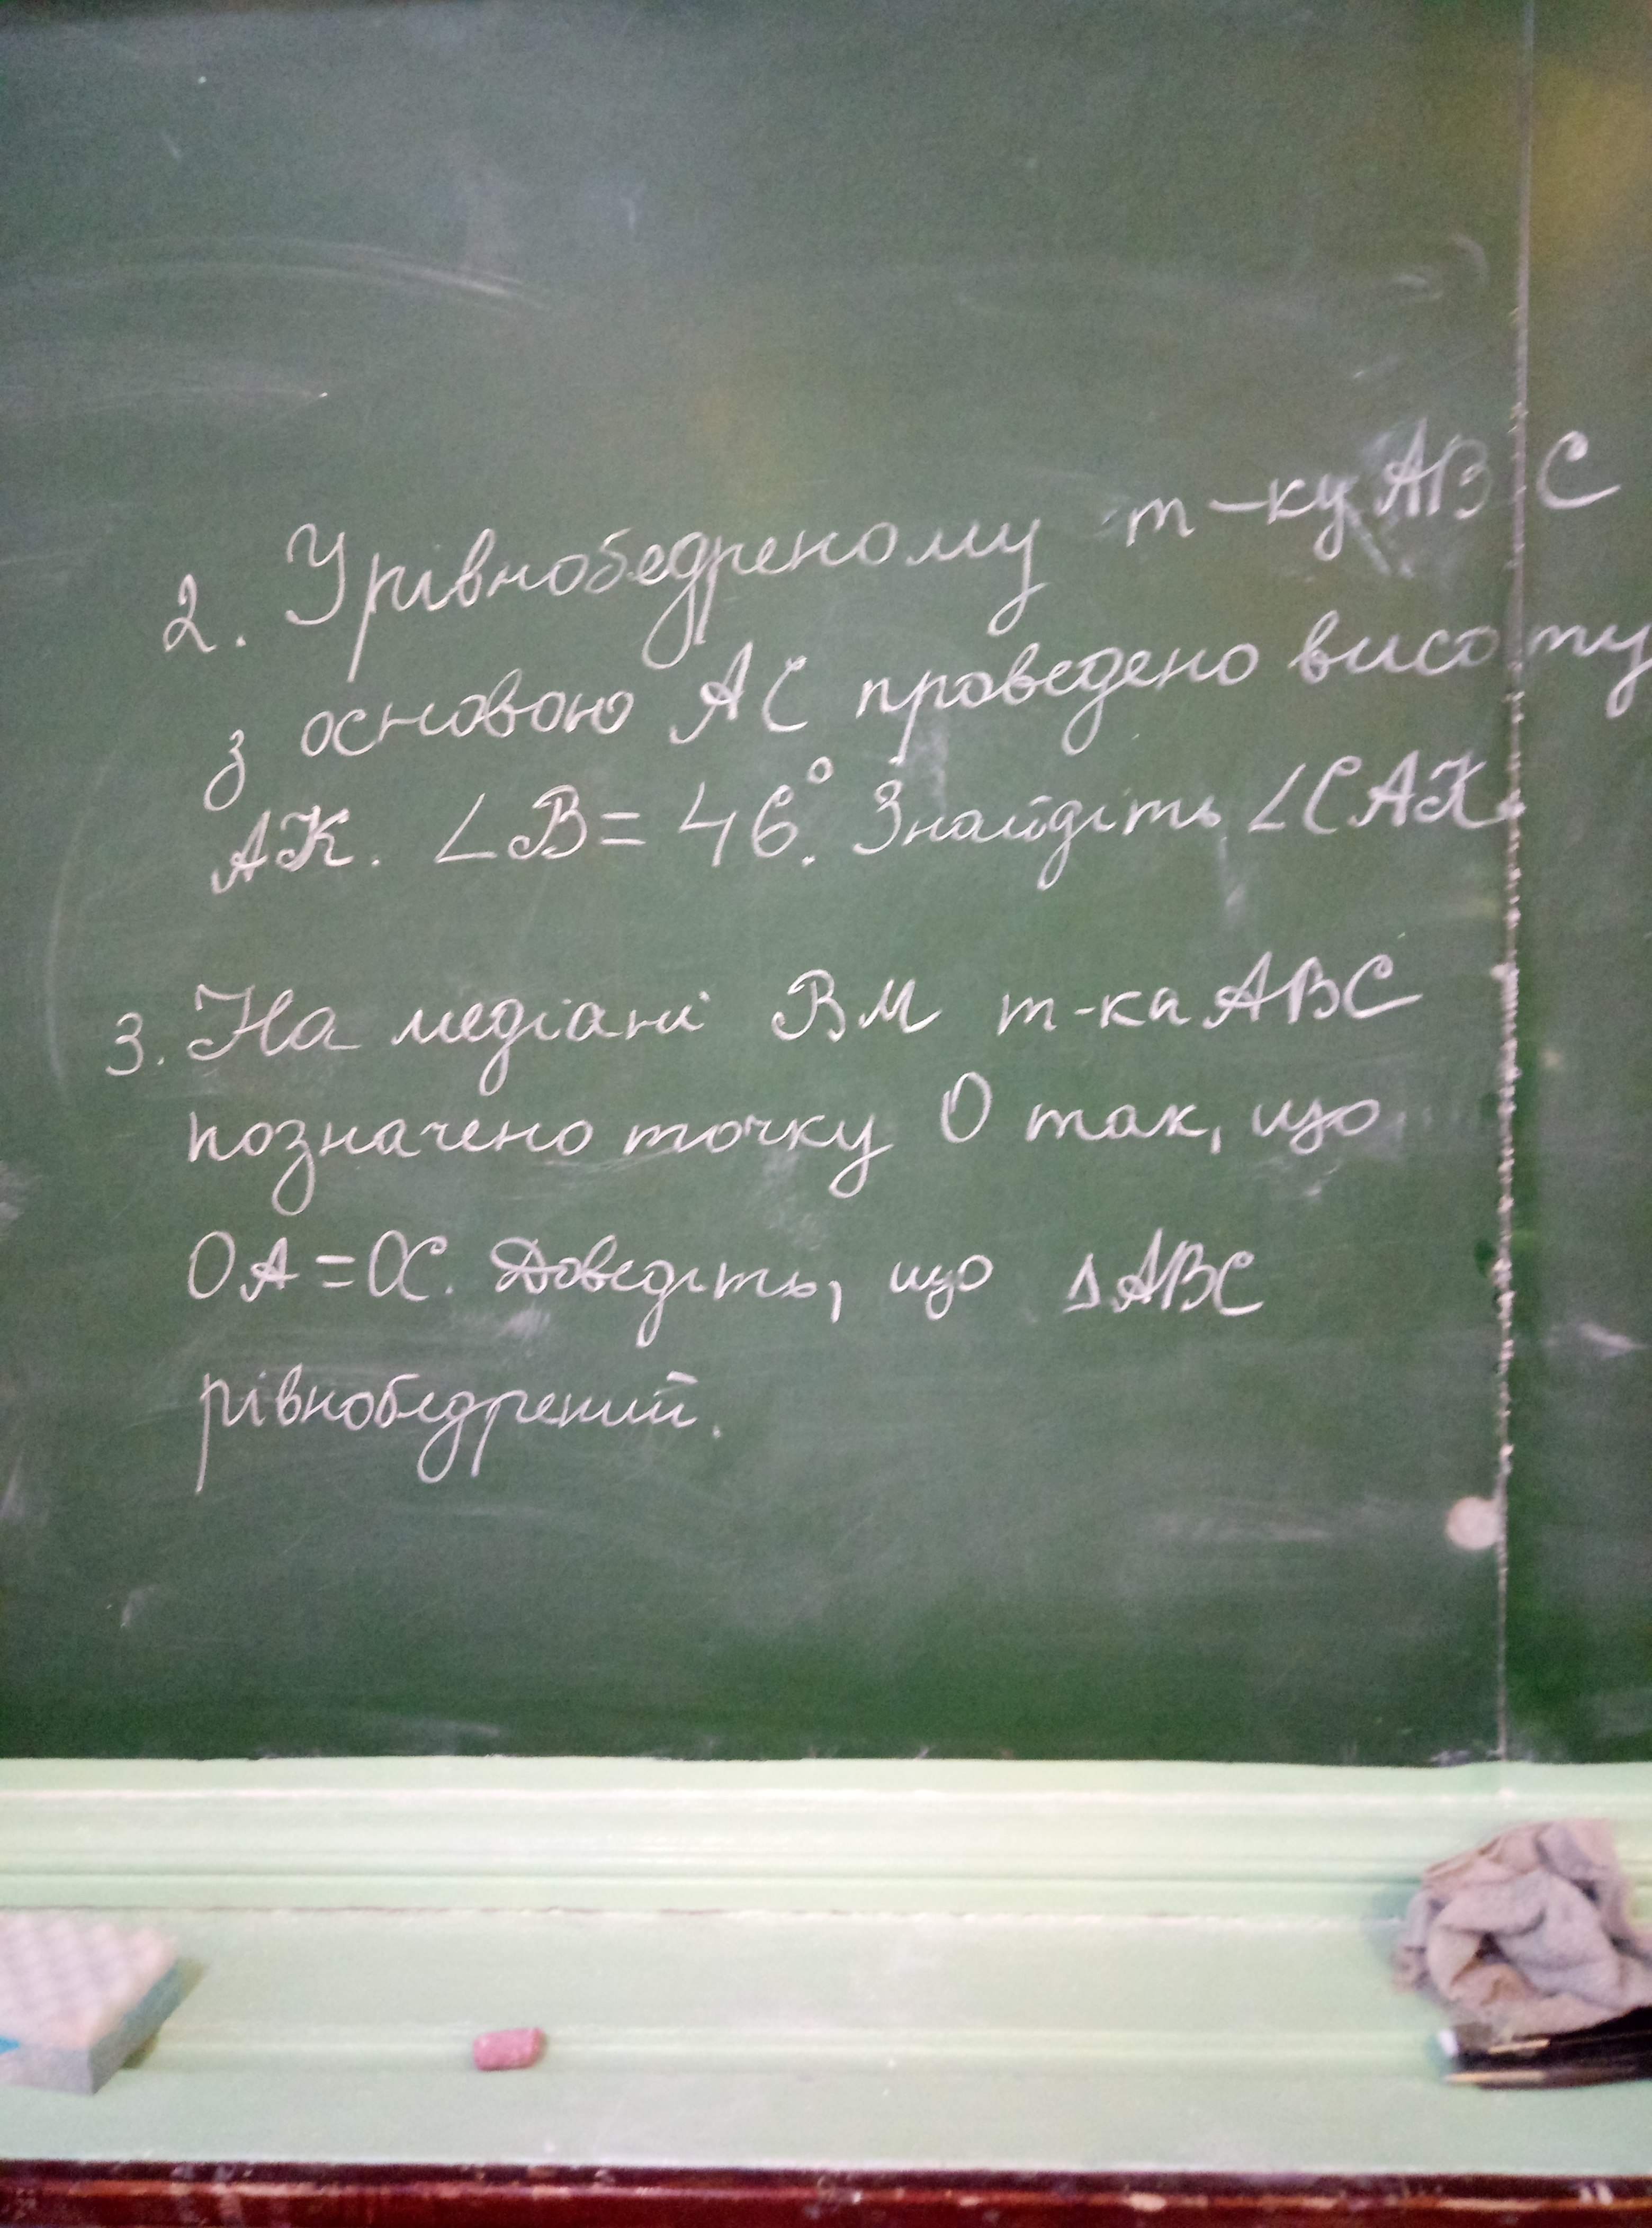 2. У рівнобедреному т-ку ABC
з основою AC проведено висоту
AK. ∠B = 46°. Знайдіть ∠CAK.
3. На медіані BM т-ка ABC
позначено точку O так, що
OA = OC. Доведіть, що ΔABC
рівнобедрений.